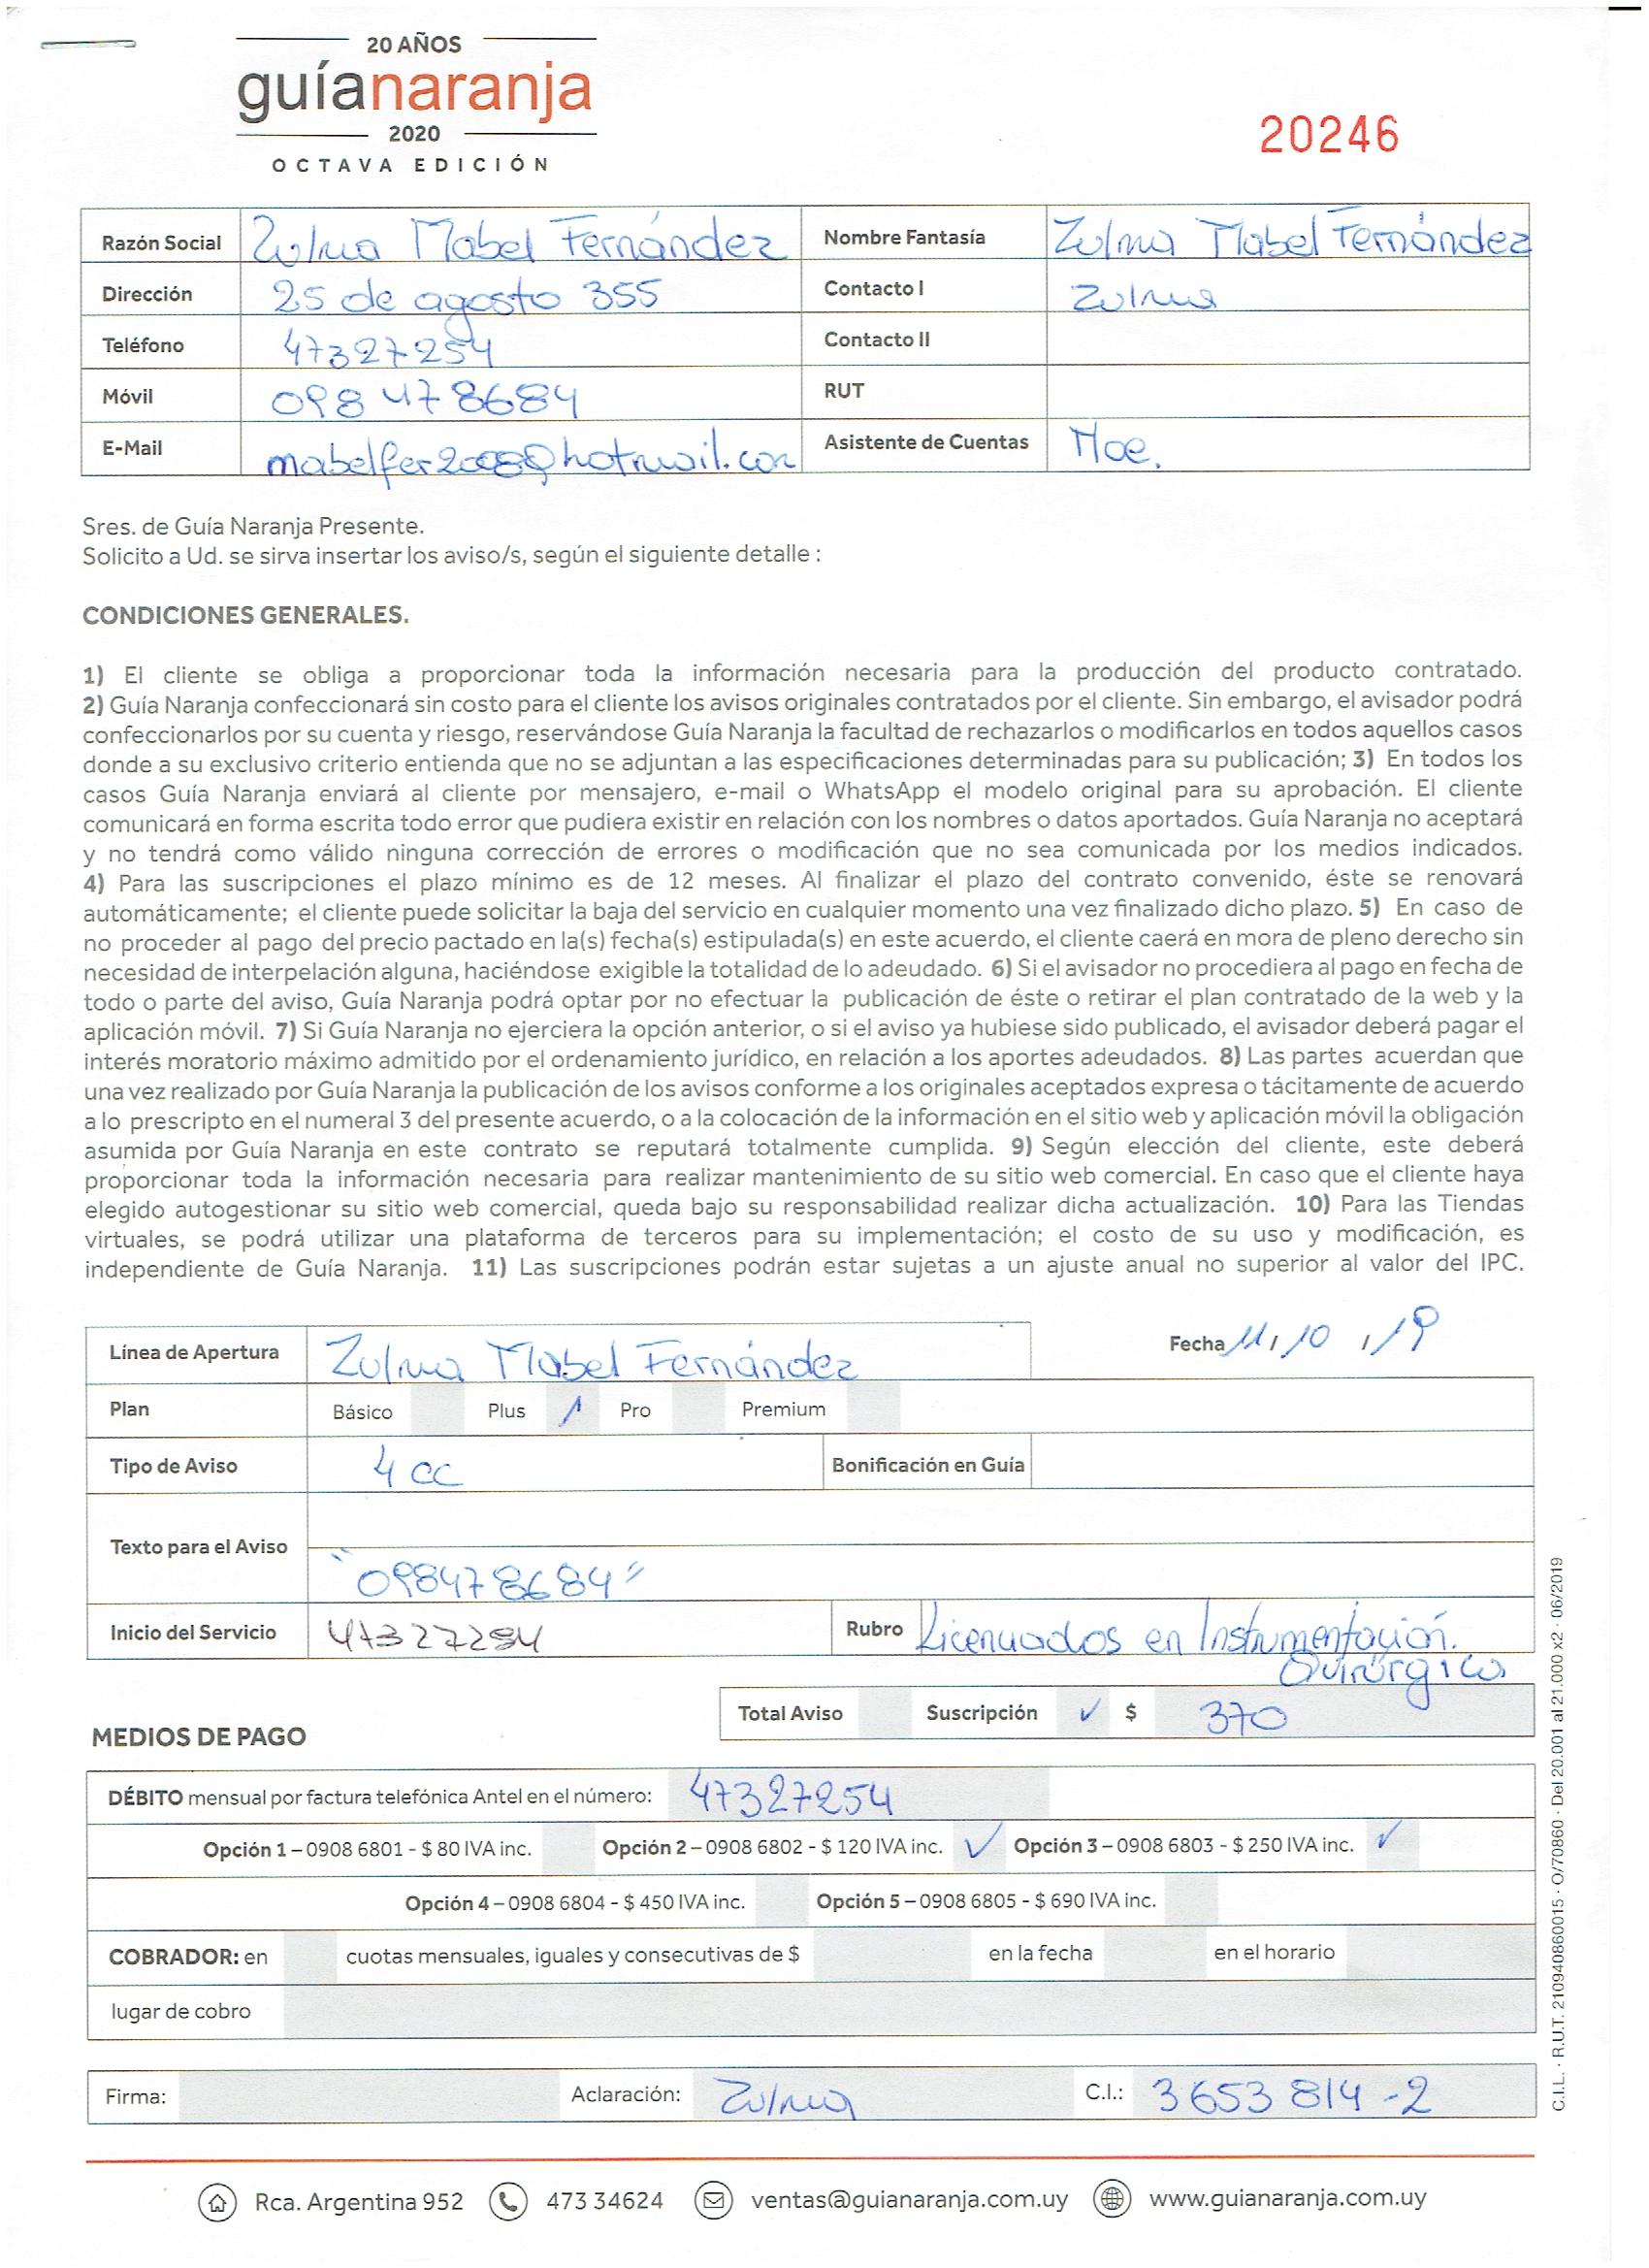 20 AÑOS
guíanaranja
2020
OCTAVA EDICIÓN
20246
Razón Social Zulma Mabel Fernández Nombre Fantasía Zulma Mabel Fernández
Dirección 25 de agosto 355 Contacto I Zulma
Teléfono 47327254 Contacto II
Móvil 098 478684 RUT
E-Mail mabelfer2008@hotmail.com Asistente de Cuentas Noe.
Sres. de Guía Naranja Presente.
Solicito a Ud. se sirva insertar los aviso/s, según el siguiente detalle :
CONDICIONES GENERALES.
1) El cliente se obliga a proporcionar toda la información necesaria para la producción del producto contratado.
2) Guía Naranja confeccionará sin costo para el cliente los avisos originales contratados por el cliente. Sin embargo, el avisador podrá
confeccionarlos por su cuenta y riesgo, reservándose Guía Naranja la facultad de rechazarlos o modificarlos en todos aquellos casos
donde a su exclusivo criterio entienda que no se adjuntan a las especificaciones determinadas para su publicación; 3) En todos los
casos Guía Naranja enviará al cliente por mensajero, e-mail o WhatsApp el modelo original para su aprobación. El cliente
comunicará en forma escrita todo error que pudiera existir en relación con los nombres o datos aportados. Guía Naranja no aceptará
y no tendrá como válido ninguna corrección de errores o modificación que no sea comunicada por los medios indicados.
4) Para las suscripciones el plazo mínimo es de 12 meses. Al finalizar el plazo del contrato convenido, éste se renovará
automáticamente; el cliente puede solicitar la baja del servicio en cualquier momento una vez finalizado dicho plazo. 5) En caso de
no proceder al pago del precio pactado en la(s) fecha(s) estipulada(s) en este acuerdo, el cliente caerá en mora de pleno derecho sin
necesidad de interpelación alguna, haciéndose exigible la totalidad de lo adeudado. 6) Si el avisador no procediera al pago en fecha de
todo o parte del aviso, Guía Naranja podrá optar por no efectuar la publicación de éste o retirar el plan contratado de la web y la
aplicación móvil. 7) Si Guía Naranja no ejerciera la opción anterior, o si el aviso ya hubiese sido publicado, el avisador deberá pagar el
interés moratorio máximo admitido por el ordenamiento jurídico, en relación a los aportes adeudados. 8) Las partes acuerdan que
una vez realizado por Guía Naranja la publicación de los avisos conforme a los originales aceptados expresa o tácitamente de acuerdo
a lo prescripto en el numeral 3 del presente acuerdo, o a la colocación de la información en el sitio web y aplicación móvil la obligación
asumida por Guía Naranja en este contrato se reputará totalmente cumplida. 9) Según elección del cliente, este deberá
proporcionar toda la información necesaria para realizar mantenimiento de su sitio web comercial. En caso que el cliente haya
elegido autogestionar su sitio web comercial, queda bajo su responsabilidad realizar dicha actualización. 10) Para las Tiendas
virtuales, se podrá utilizar una plataforma de terceros para su implementación; el costo de su uso y modificación, es
independiente de Guía Naranja. 11) Las suscripciones podrán estar sujetas a un ajuste anual no superior al valor del IPC.
Línea de Apertura Zulma Mabel Fernández Fecha 11/ 10 / 19
Plan Básico Plus / Pro Premium
Tipo de Aviso 4 cc Bonificación en Guía
Texto para el Aviso
"098478684"
Inicio del Servicio 47327254 Rubro Licenciados en Instrumentación.
Quirúrgica
Total Aviso Suscripción ✓ $ 370
MEDIOS DE PAGO
DÉBITO mensual por factura telefónica Antel en el número: 47327254
Opción 1 – 0908 6801 - $ 80 IVA inc. Opción 2 – 0908 6802 - $ 120 IVA inc. ✓ Opción 3 – 0908 6803 - $ 250 IVA inc. ✓
Opción 4 – 0908 6804 - $ 450 IVA inc. Opción 5 – 0908 6805 - $ 690 IVA inc.
COBRADOR: en cuotas mensuales, iguales y consecutivas de $ en la fecha en el horario
lugar de cobro
Firma: Aclaración: Zulma C.I.: 3653 814-2
C.I.L. · R.U.T. 210940860015 · O/70860 · Del 20.001 al 21.000 x2 · 06/2019
Rca. Argentina 952 473 34624 ventas@guianaranja.com.uy www.guianaranja.com.uy